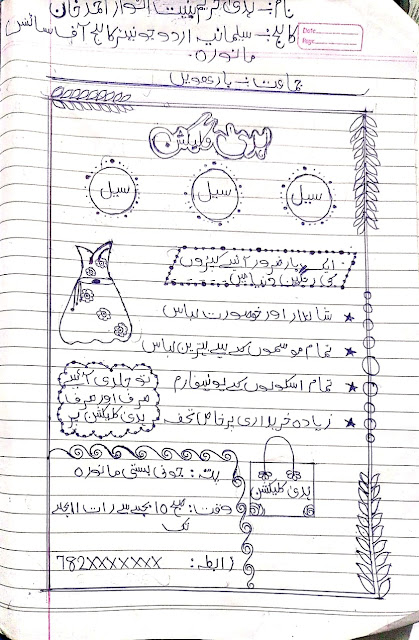 نام:- ہدیٰ مریم بنت انوار احمد خان
کالج:- سلیمانیہ اردو جونیئر کالج آف سائنس
مانورہ.
Date
Page
جماعت:- بارہویں
ہدیٰ کلیکشن
سیل
سیل
سیل
ایک بار ضرور آئیے کپڑوں
کی رنگین دنیا میں
شاندار اور خوبصورت لباس
تمام موسموں کے لیے بہترین لباس
تمام اسکولوں کے یونیفارم
زیادہ خریداری پر خاص تحفے
تو جلدی آئیے
صرف اور صرف
ہدیٰ کلیکشن پر
ہدیٰ کلیکشن
پتہ: جونی بستی مانورہ
وقت: صبح 10 بجے سے رات 11 بجے
تک
رابطہ: 782XXXXXXX